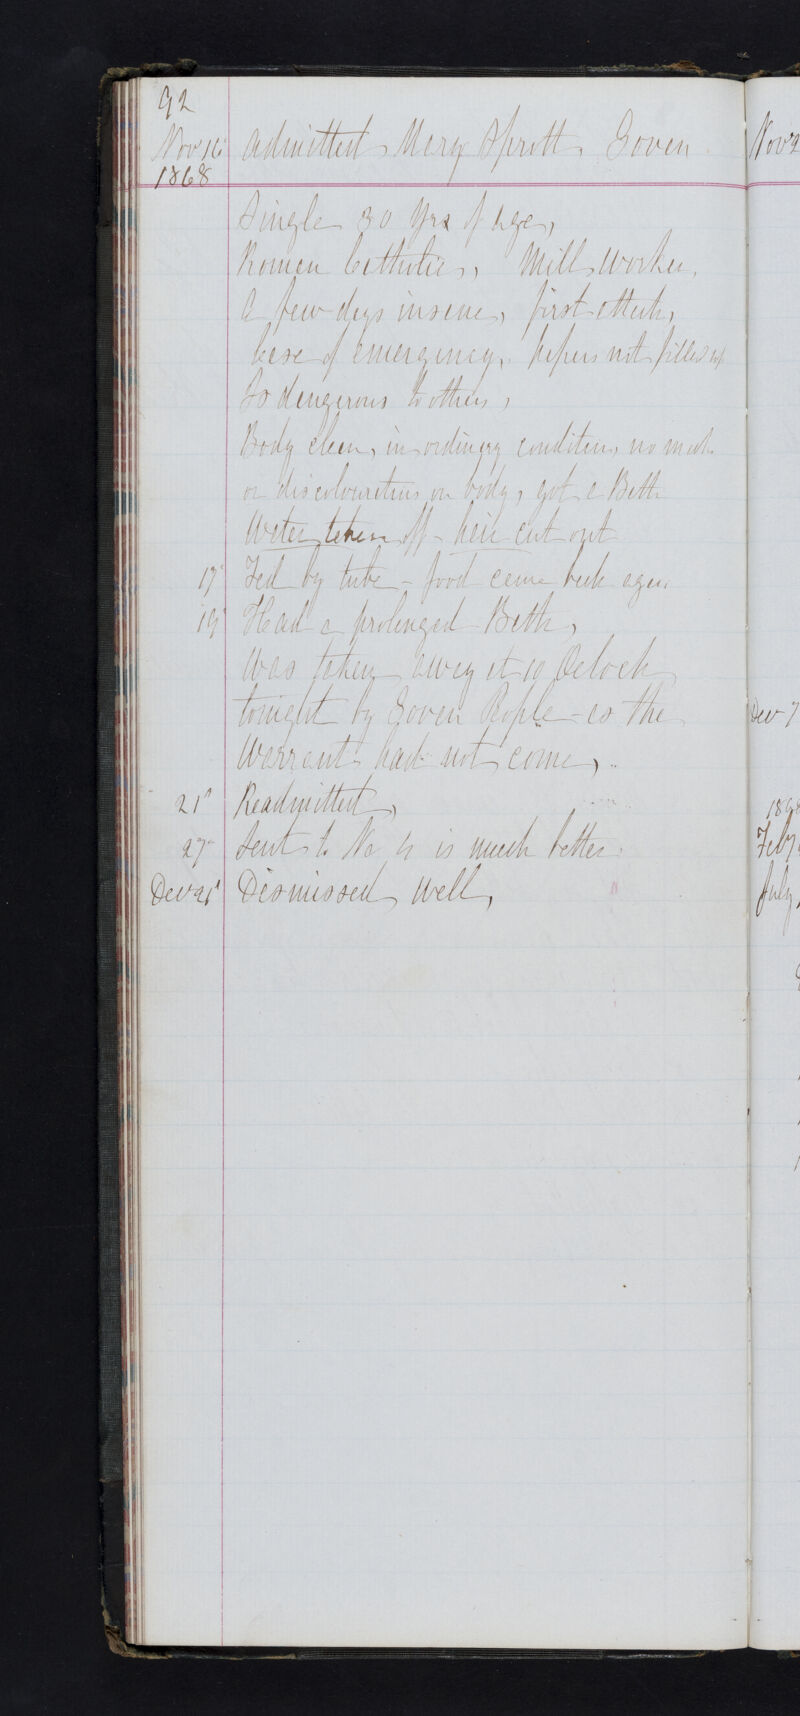 92
Nov 16 Admitted, Mary Sprott, Govan
1868
Single 30 Yrs of age,
Roman Catholic, Mill Worker,
A few days insane, first attack,
Case of emergency, papers not filled up
Is dangerous to others,
Body clean, in ordinary condition, no mark
or discolourations on body, got a Bath
Water taken off - hair cut out
17 Fed by tube - food came back again
19 Had a prolonged Bath,
Was taken away at 10 Oclock
tonight by Govan People - as the
Warrant had not come,
21st Readmitted,
27 Sent to No 4 is much better
Dec 21st Dismissed Well,
Nov
Dec 7
Feby
July